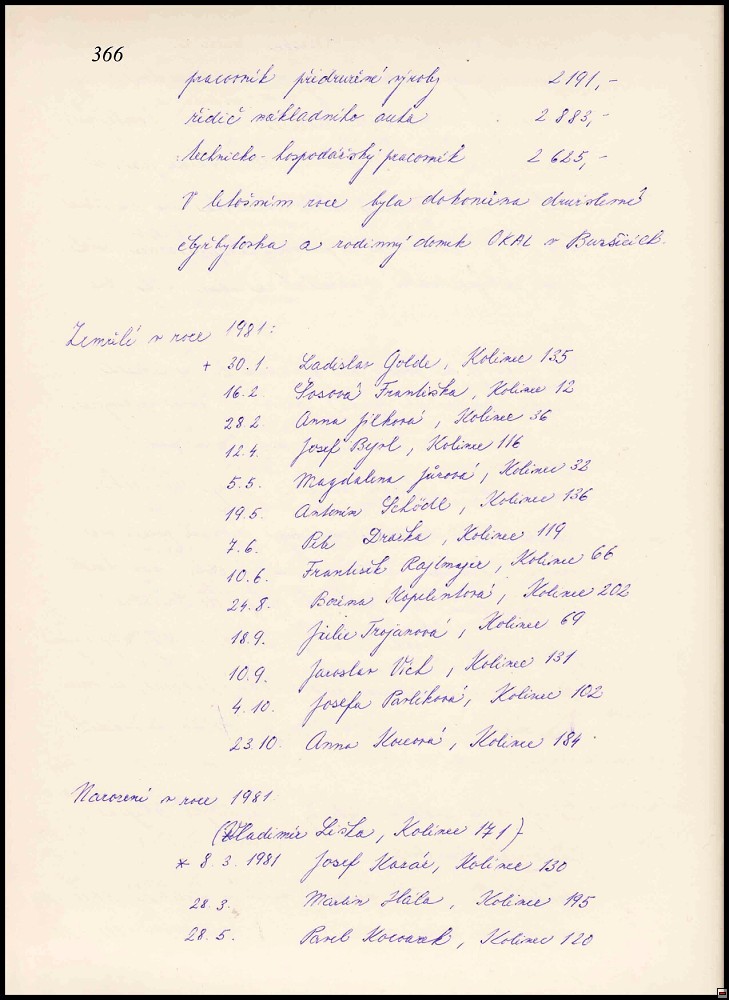 366
pracovník přidružené výroby 2191,-
řidič nákladního auta 2 883,-
technicko-hospodářský pracovník 2 625,-
V letošním roce byla dokončena družstevní
čtyřbytovka a rodinný domek OKAL v Buršicích.
Zemřelí v roce 1981:
+ 30.1. Ladislav Golde, Kolinec 135
16.2 Šosová Františka, Kolinec 12
28 2. Anna Jílková, Kolinec 36
12.4. Josef Byrl, Kolinec 116
5.5. Magdalena Jůzová, Kolinec 32
19.5. Antonín Schödl, Kolinec 136
7.6. Petr Dračka, Kolinec 119
10.6. František Rajlmajer, Kolinec 66
24.8. Božena Kopelentová, Kolinec 202
18.9. Julie Trojanová, Kolinec 69
10.9. Jaroslav Vích, Kolinec 131
4.10. Josefa Pavlíková, Kolinec 102
23.10. Anna Kocová, Kolinec 184.
Narození v roce 1981
(Vladimír Liška, Kolinec 171)
* 8.3.1981 Josef Kazár, Kolinec 130
28 3. Martin Hála, Kolinec 195
28.5. Pavel Kocourek, Kolinec 120